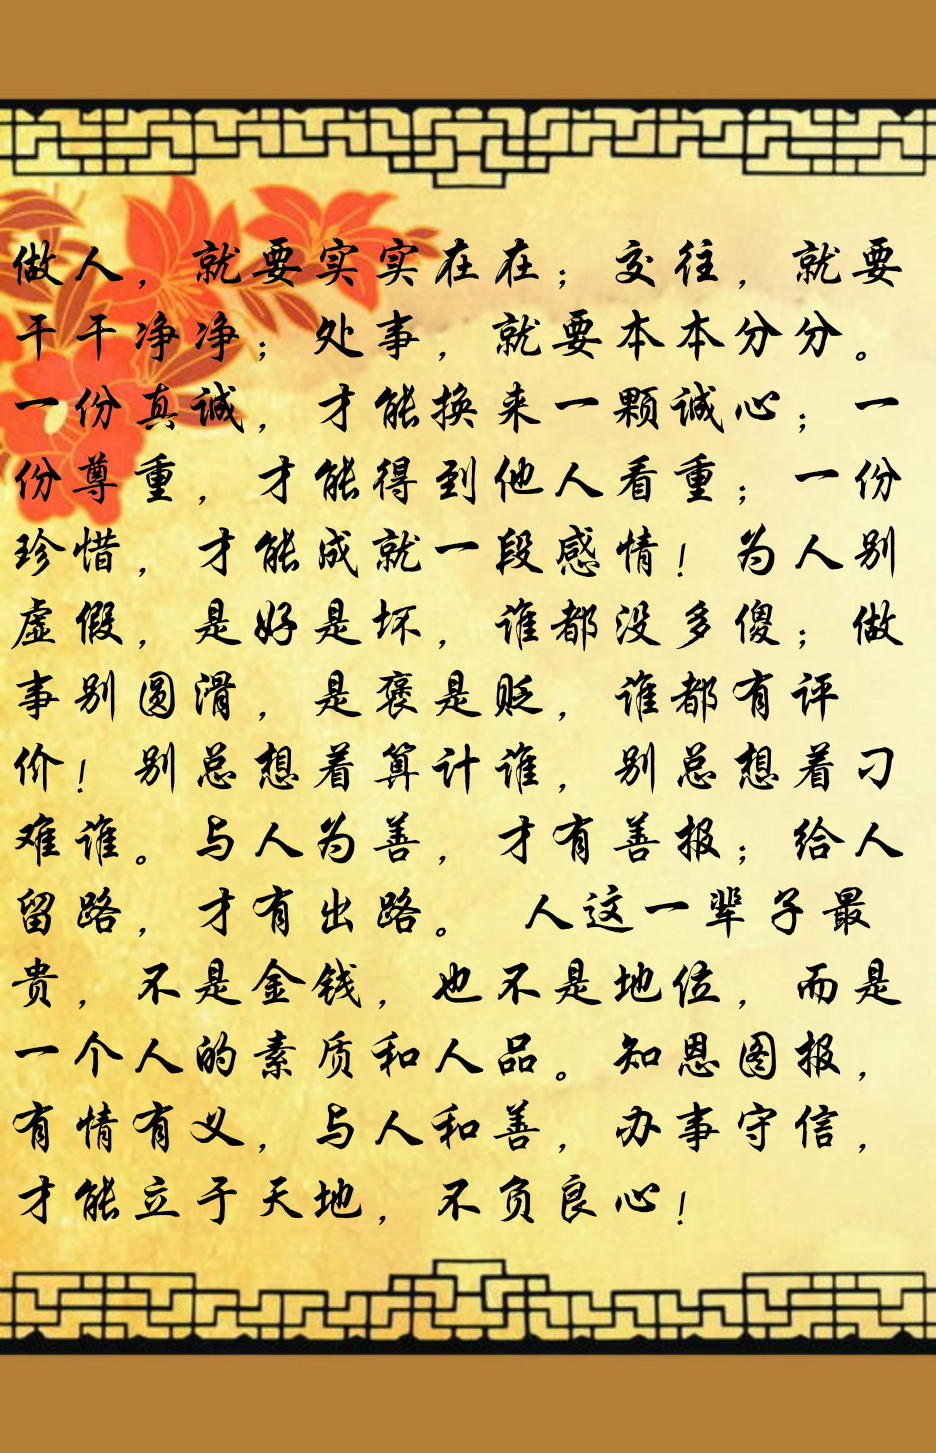 做人，就要实实在在；交往，就要
干干净净；处事，就要本本分分。
一份真诚，才能换来一颗诚心；一
份尊重，才能得到他人看重；一份
珍惜，才能成就一段感情！为人别
虚假，是好是坏，谁都没多傻；做
事别圆滑，是褒是贬，谁都有评
价！别总想着算计谁，别总想着刁
难谁。与人为善，才有善报；给人
留路，才有出路。 人这一辈子最
贵，不是金钱，也不是地位，而是
一个人的素质和人品。知恩图报，
有情有义，与人和善，办事守信，
才能立于天地，不负良心！